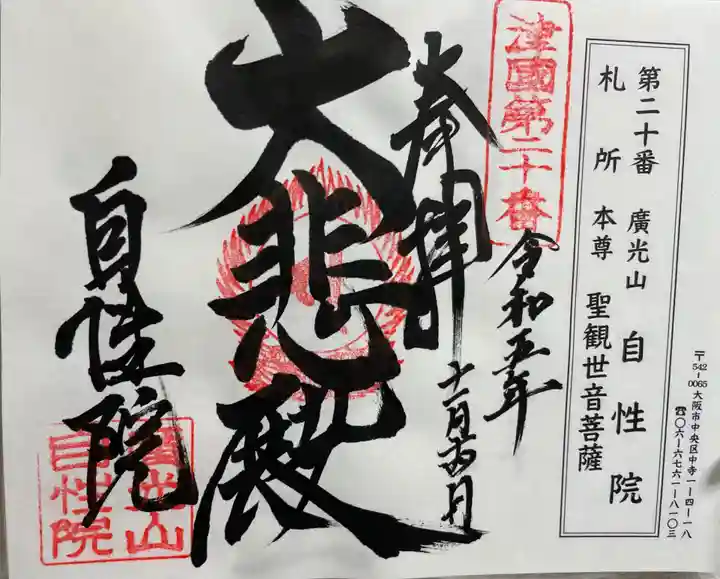 第二十番 廣光山 自性院
札所本尊 聖観世音菩薩
〒542-0065 大阪市中央区中寺1-4-18
☎〇六-六七六一-八一〇三
津國第二十番
奉拝
令和五年
大悲殿
自性院
廣光山
自性院